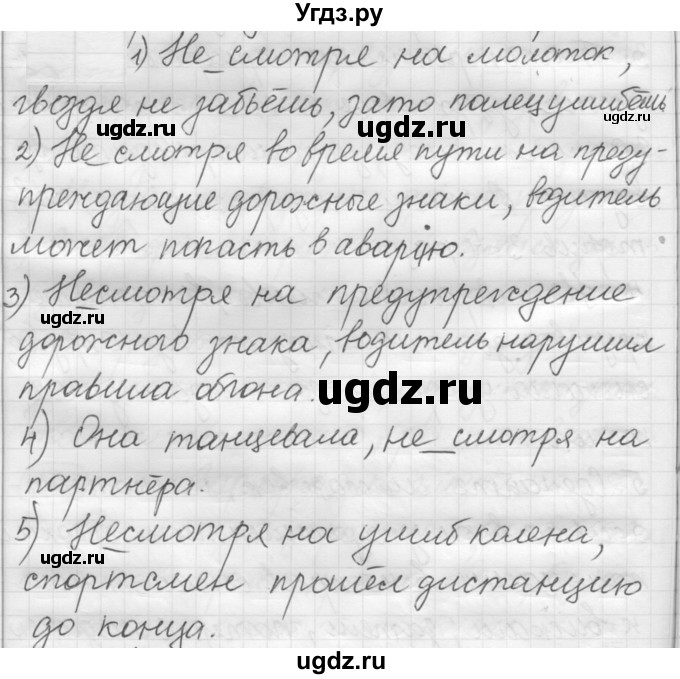 Угдз.ру
1) Не смотря на молоток,
гвоздя не забьёшь, зато палец ушибёшь
ugdz.ru ugdz.ru ugdz.ru
2) Не смотря во время пути на преду-
преждающие дорожные знаки, водитель
может попасть в аварию.
ugdz.ru
3) Несмотря на предупреждение
ugdz.ru
дорожного знака, водитель нарушил
ugdz.ru
правила обгона.
ugdz.ru
4) Она танцевала, не смотря на
партнёра.
ugdz.ru
5) Несмотря на ушиб калена,
ugdz.ru ugdz.ru
спортсмен прошёл дистанцию
до конца.
ugdz.ru